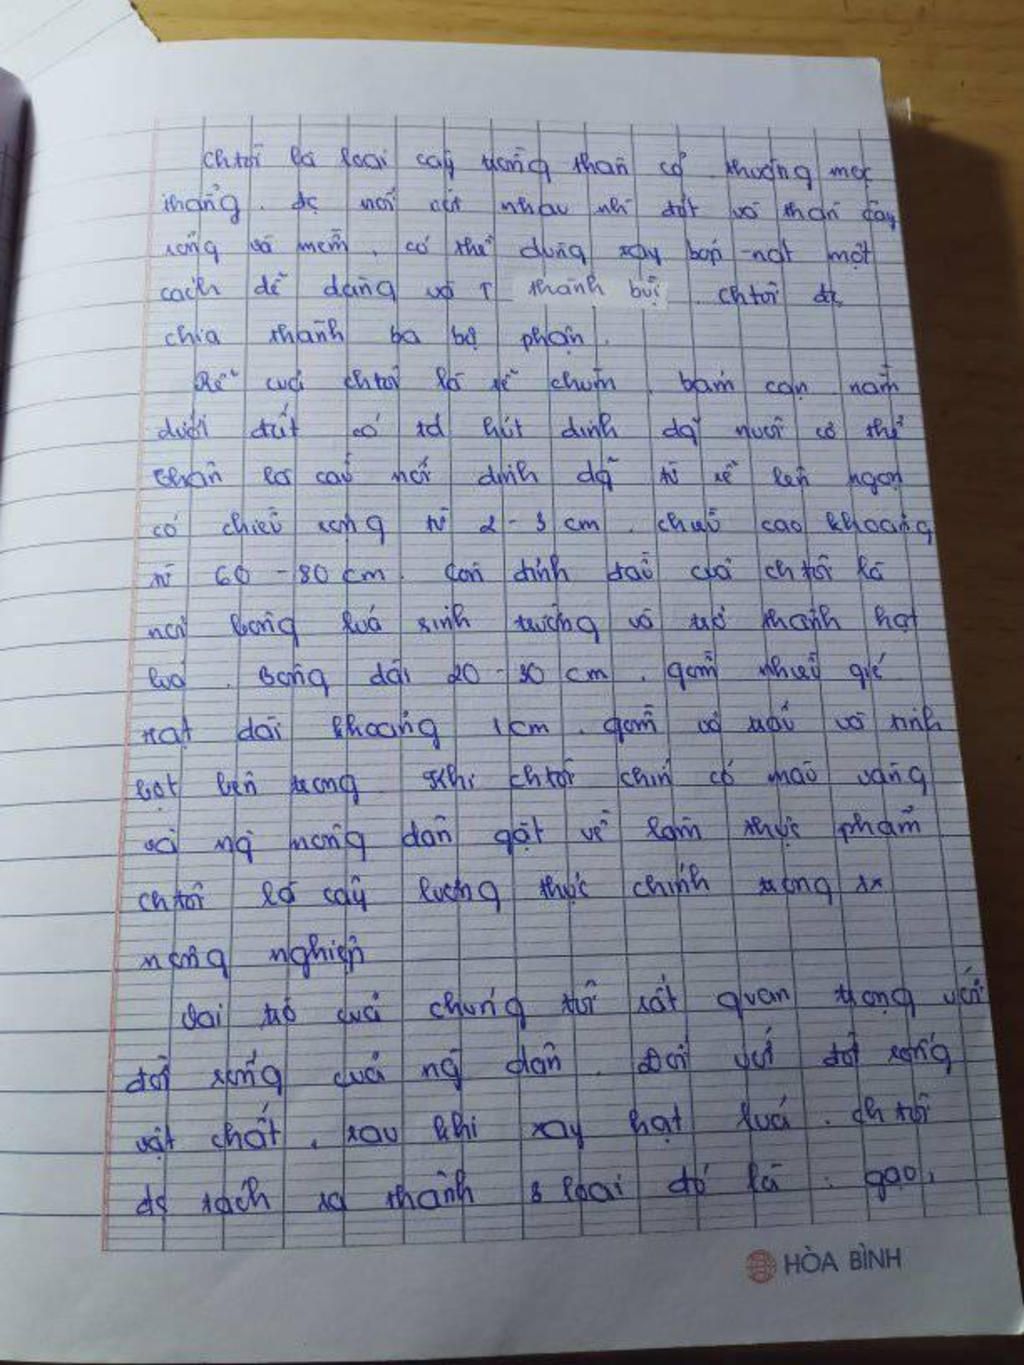 chtôi là loài cây trồng thân cỏ thường mọc
thẳng. đc nối nhau nhờ đốt và thân cây
rỗng và mềm, có thể dùng tay bóp nát một
cách dễ dàng và T thành bụi. chtôi đc
chia thành ba bộ phận.
Rễ của chtôi là rễ chùm, bám cạn nằm
dưới đất có td hút dinh dg̃ nuôi cơ thể
thân là cầu nối dinh dg̃ từ rễ lên ngọn
có chiều rộng từ 2-3 cm, chiều cao khoảng
từ 60-80 cm. Còn đỉnh đầu của chtôi là
nơi bông lúa sinh trưởng và trở thành hạt
lúa. Bông dài 20-30 cm, gồm nhiều gié
hạt dài khoảng 1cm, gồm vỏ trấu và tinh
bột bên trong. Khi chtôi chín có màu vàng
và ng nông dân gặt về làm thực phẩm
chtôi là cây lương thực chính trong sx
nông nghiệp
Vai trò của chúng tôi rất quan trọng với
đời sống của ng dân. Đối với đời sống
vật chất, sau khi xay hạt lúa. chtôi
đc tách ra thành 3 loại đó là: gạo,
HÒA BÌNH